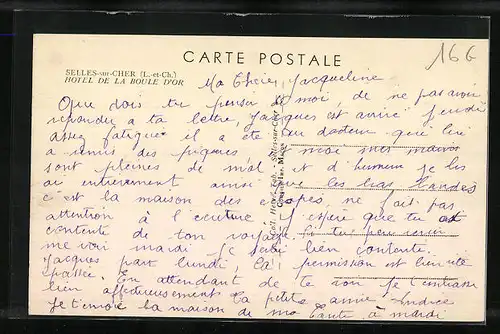 CARTE POSTALE
166
SELLES-sur-CHER (L.-et-Ch.)
HOTEL DE LA BOULE D'OR
Ma Chère Jacqueline
Que dois tu penser de moi, de ne pas avoir
répondu a ta lettre, Jacques est arrivé jeudi
assez fatigué il a été au docteur qui lui
a remis des piqures moi mes mains
sont pleines de mal et d'humeur je les
ai entièrement ainsi que les bras bandés
c'est la maison des ne fait pas
attention à l'écriture J'espère que tu es
contente de ton voyage. Si tu peu venir
me voir mardi je serai bien contente.
Jacques part lundi, la permission est bien vite
passée. En attendant de te voir je t'embrasse
bien affectueusement ta petite amie
Je t'envoie la maison de ma tante à mardi